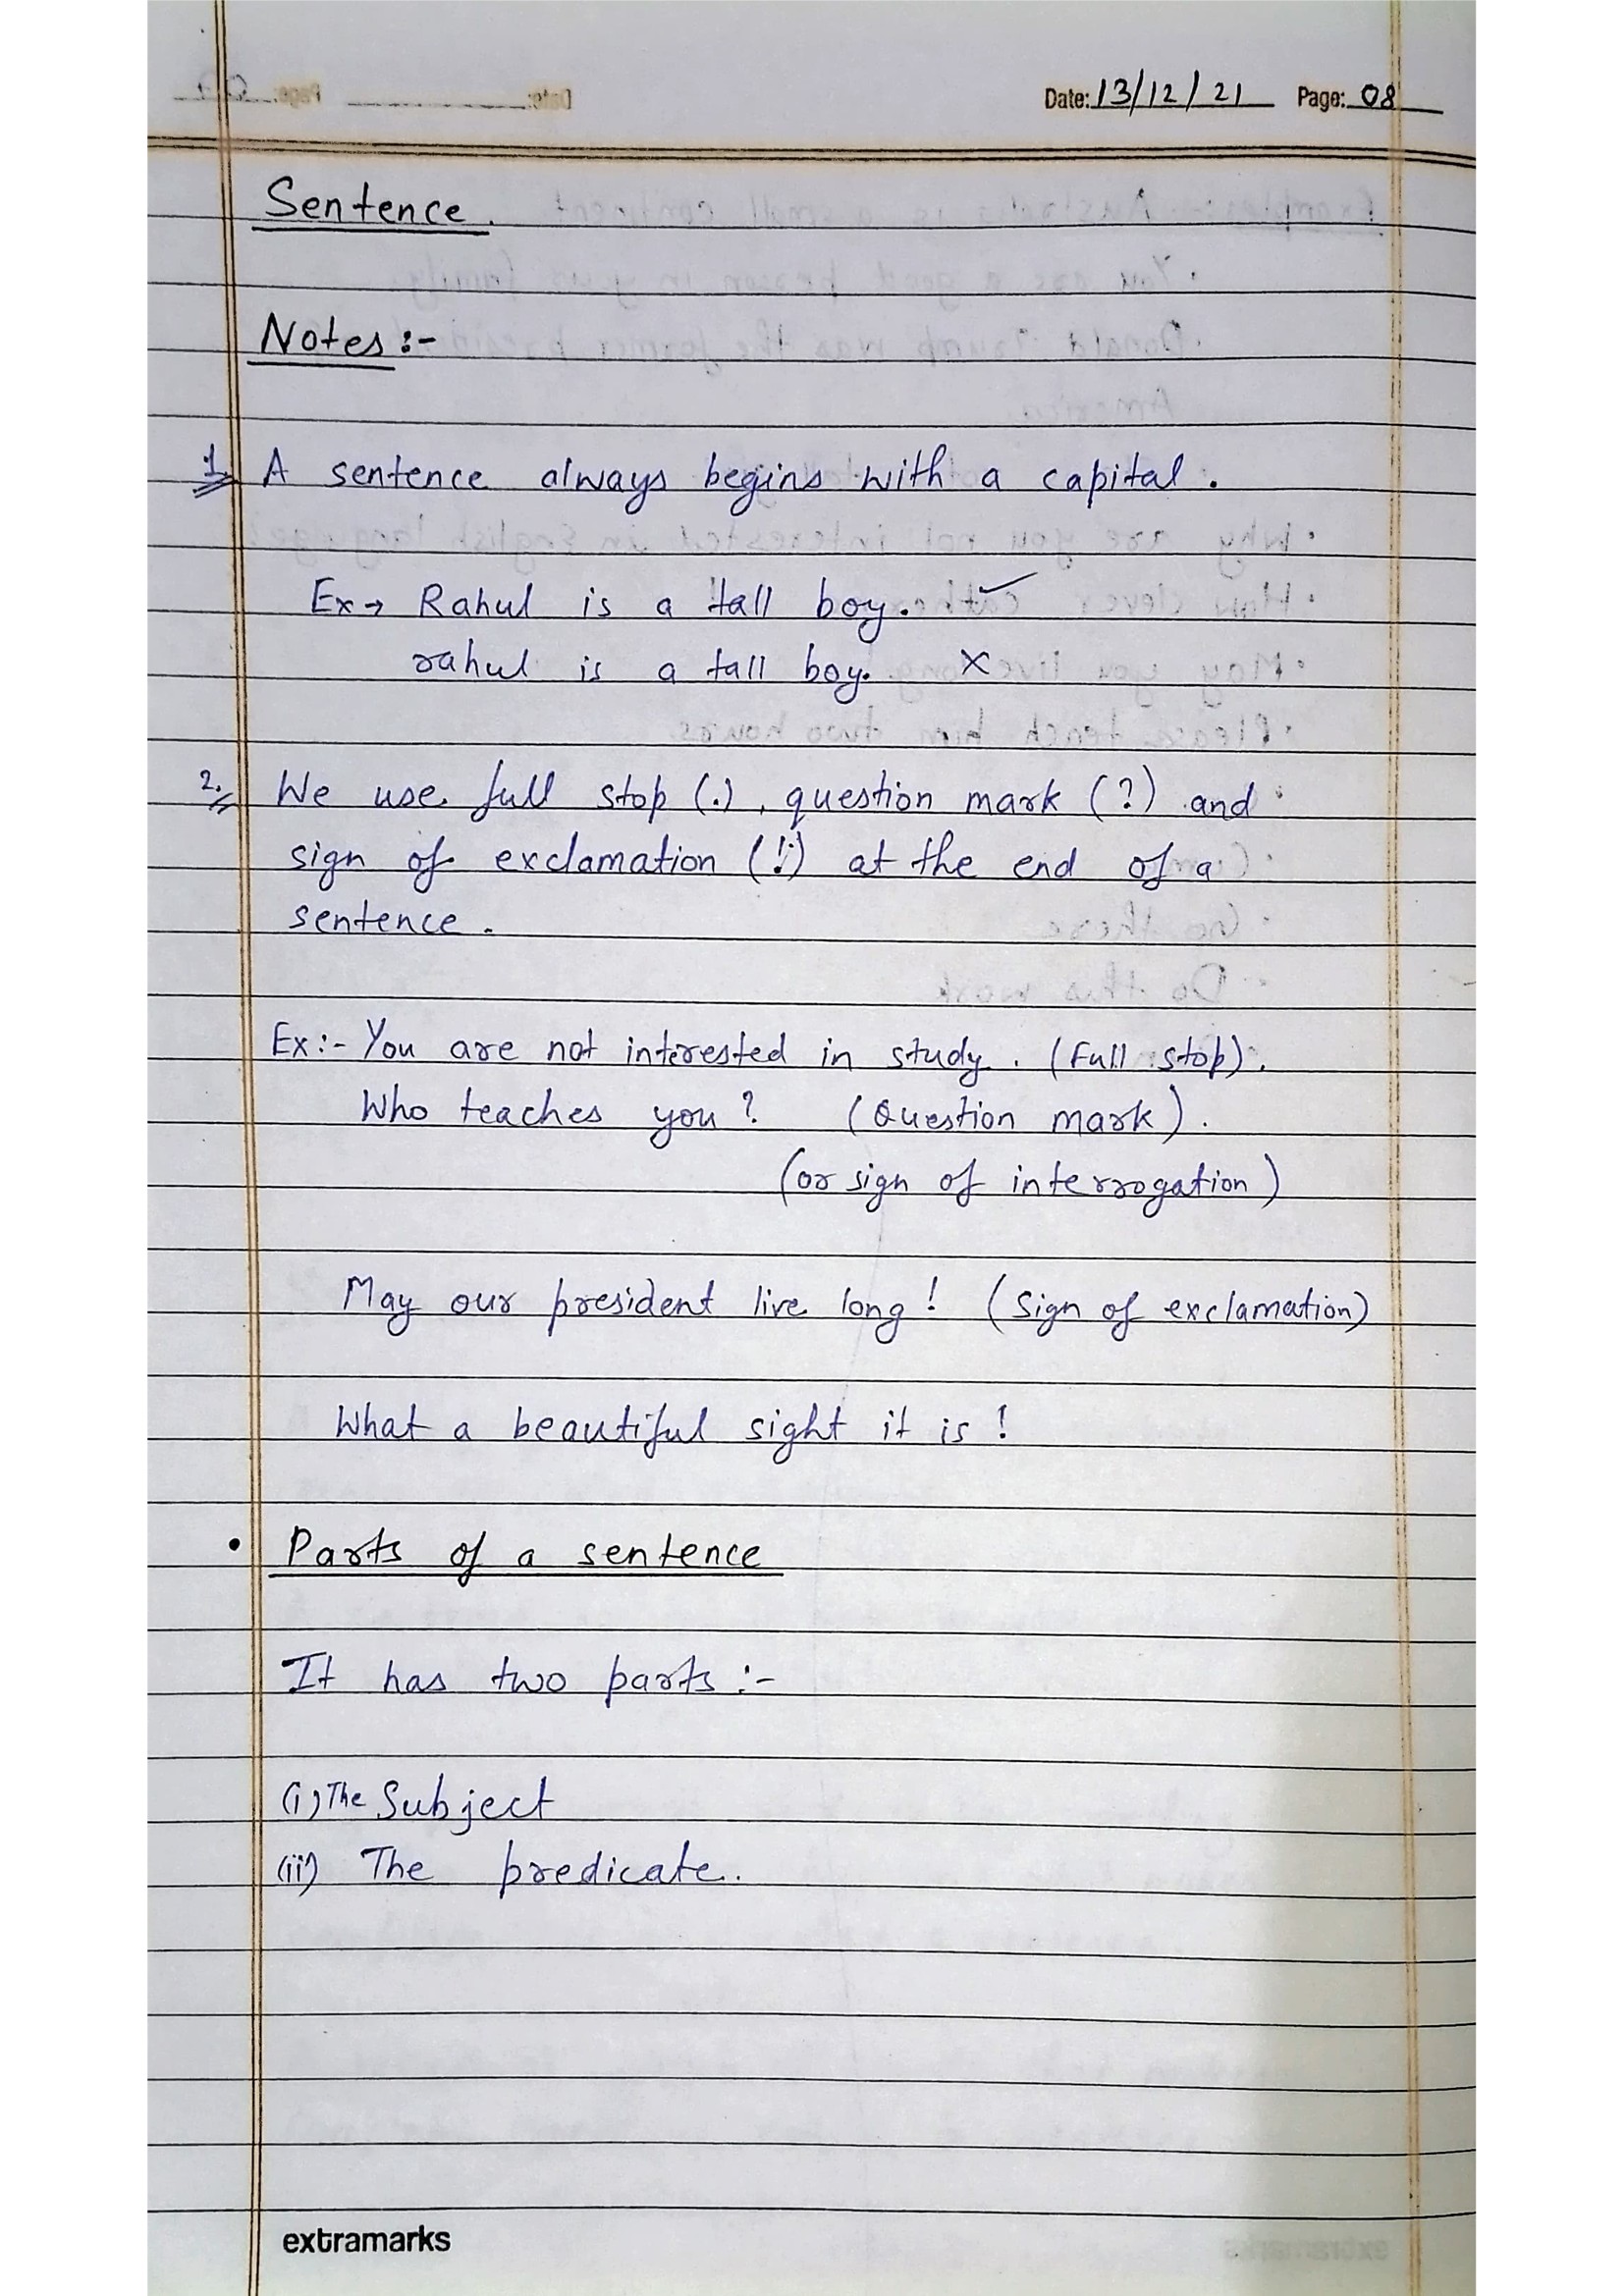 Date: 13/12/21 Page: 08
Sentence.
Notes :-
1. A sentence always begins with a capital.
Ex → Rahul is a tall boy. ✓
rahul is a tall boy. ×
2. We use full stop (.), question mark (?) and
sign of exclamation (!) at the end of a
sentence.
Ex:- You are not interested in study. (Full stop).
Who teaches you? (Question mark).
(or sign of interrogation)
May our president live long! (Sign of exclamation)
What a beautiful sight it is!
• Parts of a sentence
It has two parts :-
(i) The Subject
(ii) The predicate.
extramarks